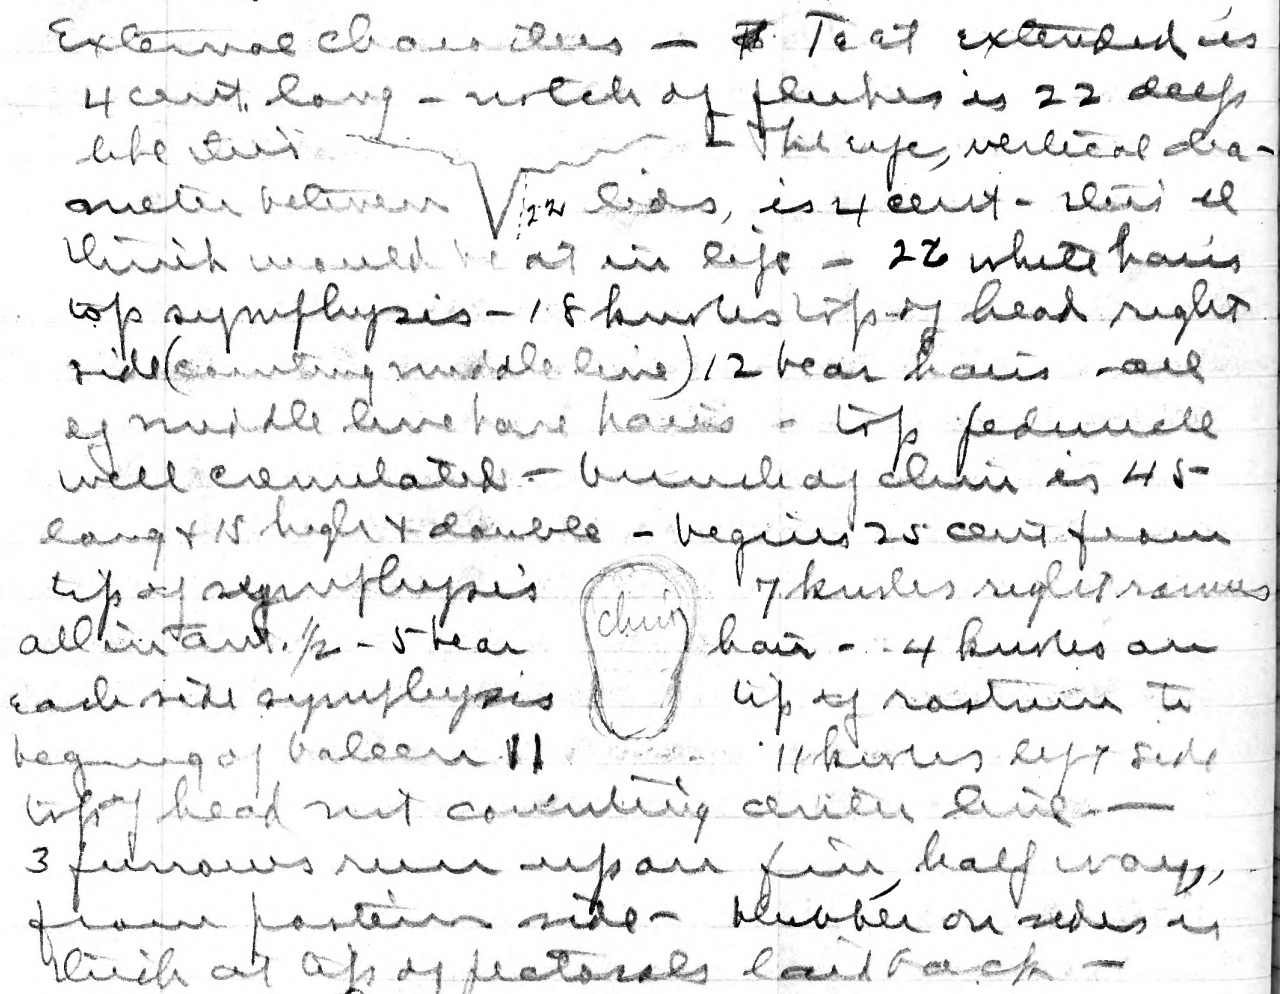 External characters — Teat extended is
4 cent. long - notch of flukes is 22 deep
like this - The eye, vertical dia-
meter between 22 lids, is 4 cent - this I
think would be at in life - 22 white hairs
top symphysis - 18 knobs top of head right
side (counting middle line) 12 bear hairs - all
of middle line have hairs - top peduncle
well crenulated - bunch of chin is 45
long & 15 high & double - begins 25 cent from
tip of symphysis chin 7 knobs right ramus
all in ant. 1/2 - 5 bear hair - 4 knobs on
each side symphysis tip of rostrum to
begining of baleen 11 11 knobs left side
top of head not counting center line —
3 furrows run up on fin, half way,
from posterior side - blubber on sides is
thick at tips of pectorals laid back -